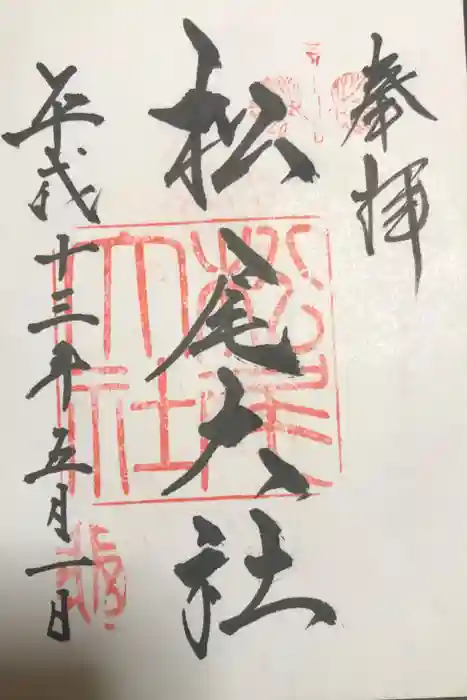 奉拝
松尾大社
平成十三年五月一日
松尾大社